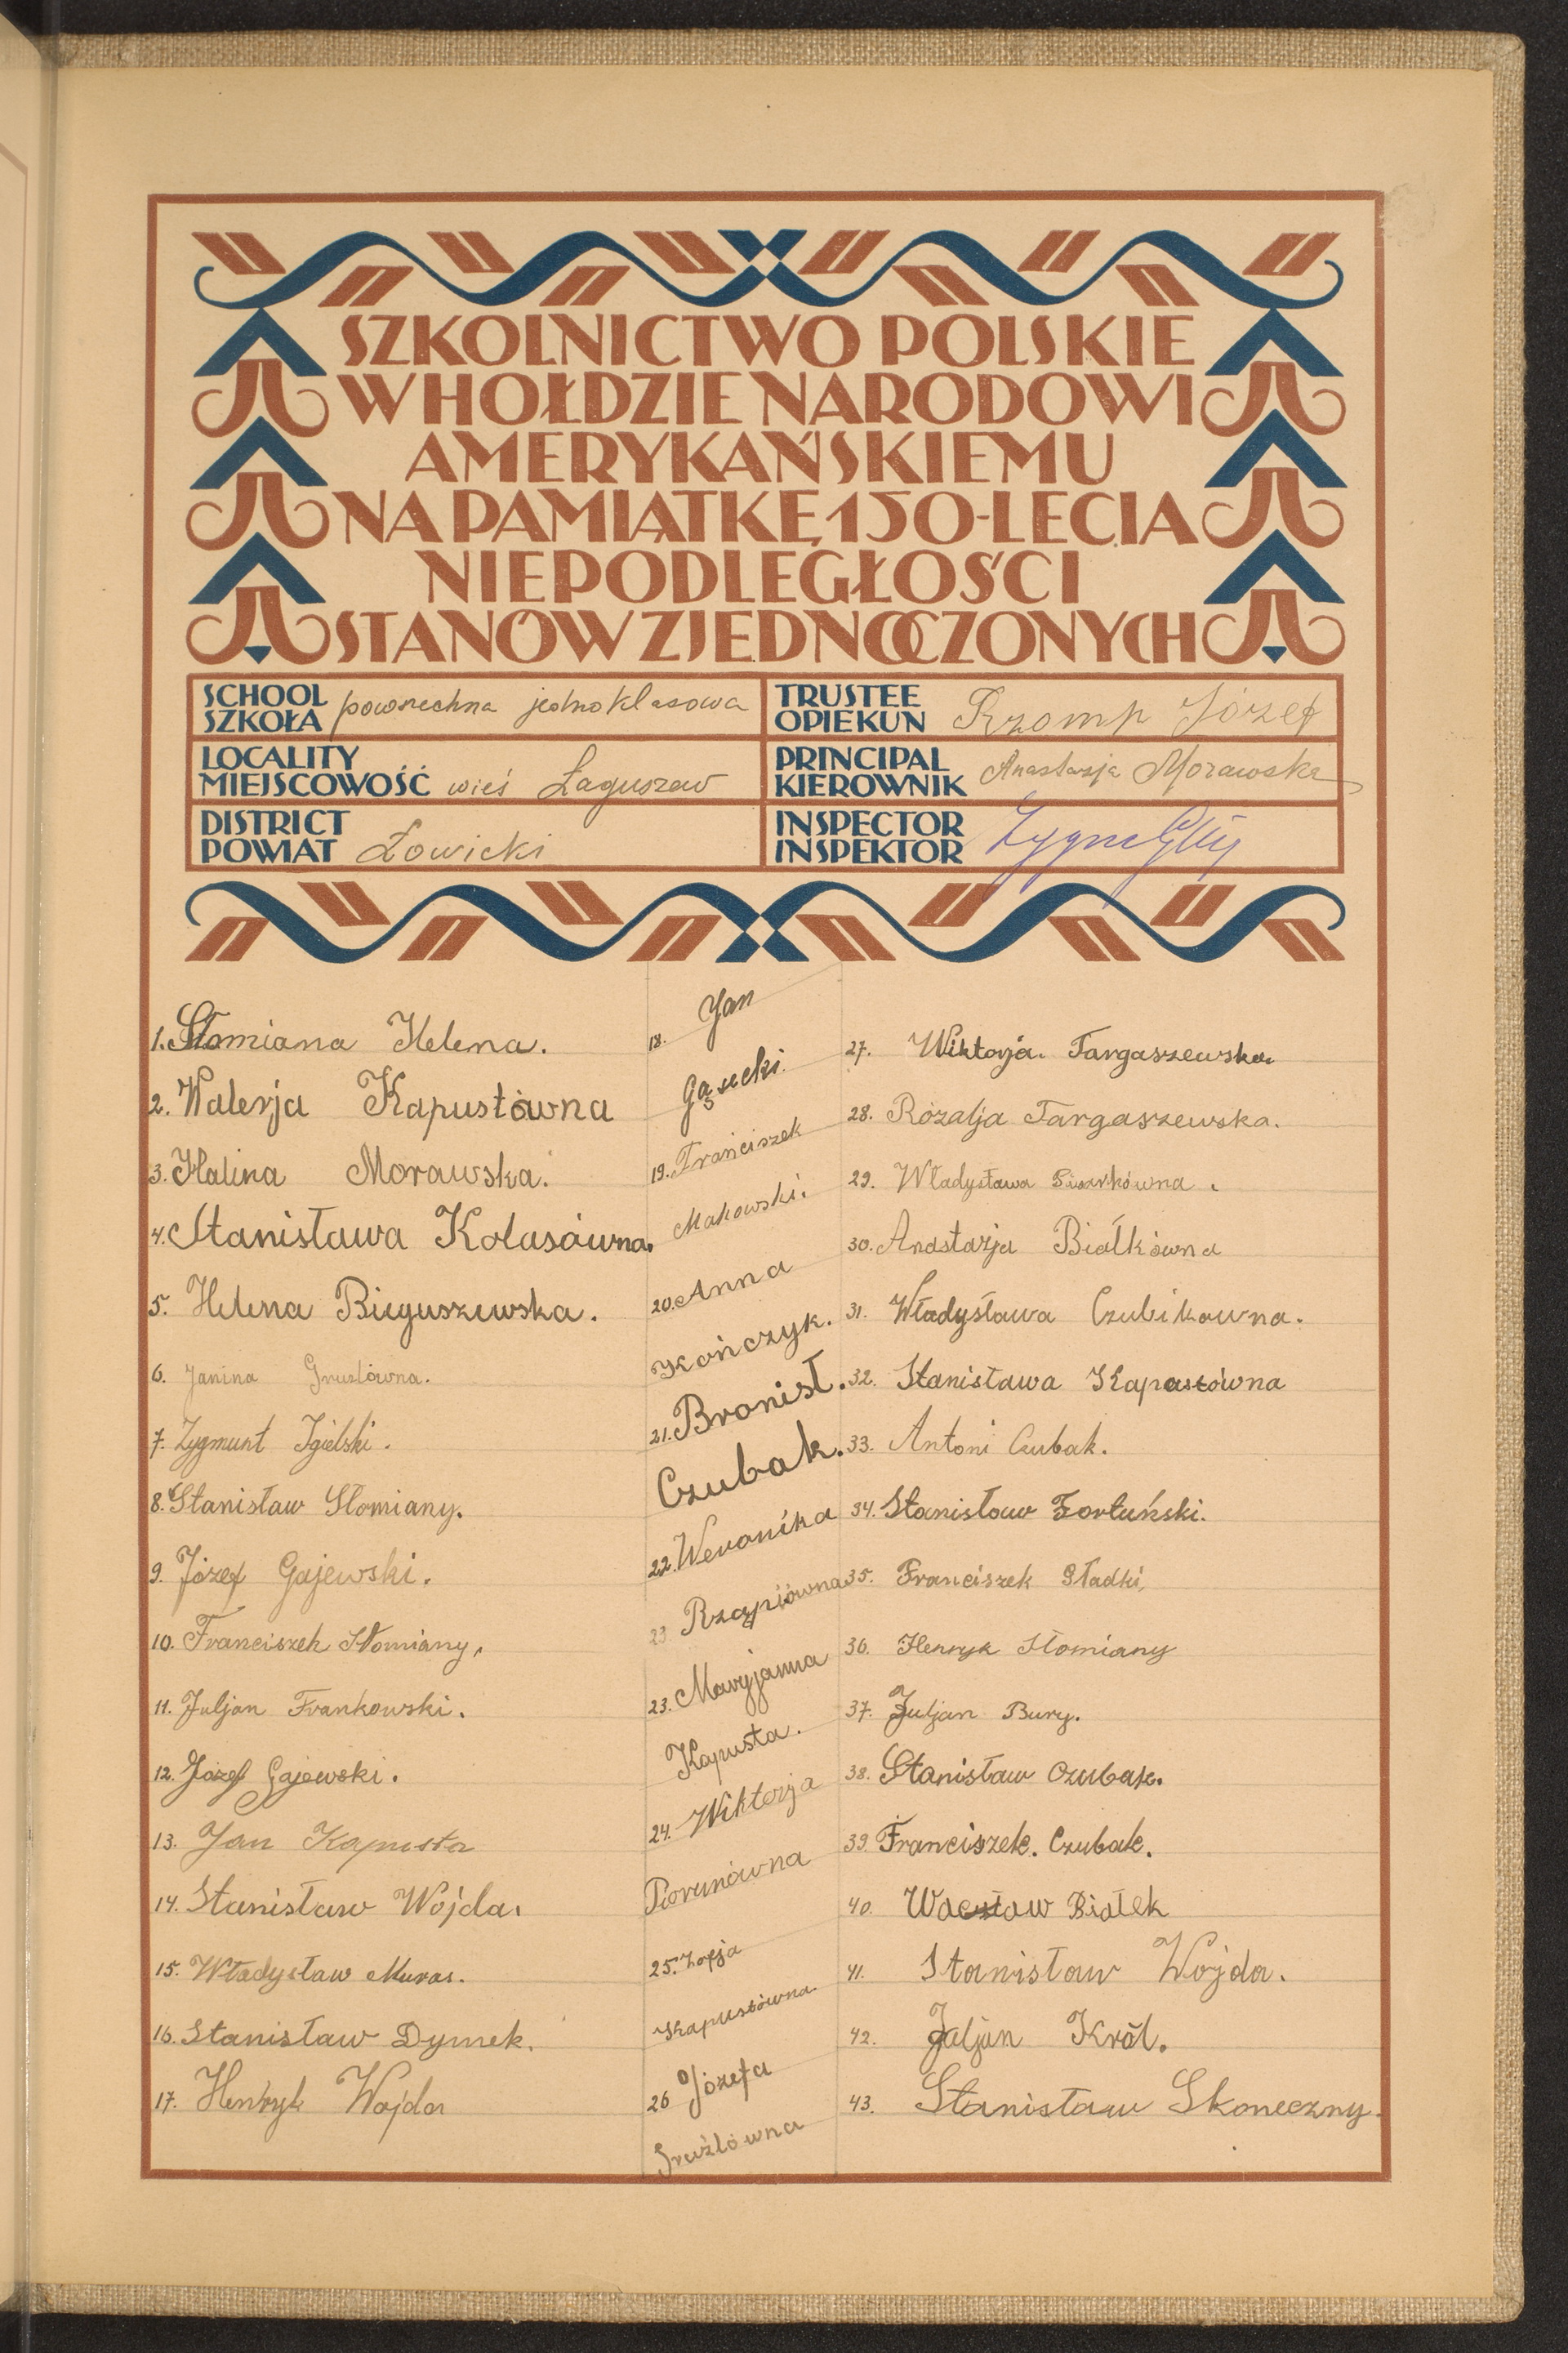 SZKOLNICTWO POLSKIE
W HOŁDZIE NARODOWI
AMERYKAŃSKIEMU
NA PAMIĄTKĘ 150-LECIA
NIEPODLEGŁOŚCI
STANÓW ZJEDNOCZONYCH
SCHOOL
SZKOŁA powszechna jednoklasowa
TRUSTEE
OPIEKUN Rzomp Józef
LOCALITY
MIEJSCOWOŚĆ wieś Łaguszew
PRINCIPAL
KIEROWNIK Anastazja Morawska
DISTRICT
POWIAT Łowicki
INSPECTOR
INSPEKTOR
1. Słomiana Helena.
2. Walerja Kapustówna
3. Halina Morawska.
4. Stanisława Kolasówna.
5. Helena Bieguszewska.
6. Janina
7. Zygmunt Igielski.
8. Stanisław Słomiany.
9. Józef Gajewski.
10. Franciszek Słomiany.
11. Juljan Frankowski.
12. Józef Gajewski.
13. Jan Kapusta
14. Stanisław Wojda.
15. Władysław Muras.
16. Stanisław Dymek.
17. Henryk Wojda
18. Jan
Gąsecki.
19. Franciszek
Makowski.
20. Anna
Kończyk.
21. Bronisł.
Czubak.
22. Weronika
23 Rząpiówna
23. Maryjanna
Kapusta.
24. Wiktorja
Piorunówna
25. Zofja
Kapustówna
26 Józefa
27. Wiktorja. Targaszewska.
28. Rozalja Targaszewska.
29. Władysława
30. Anastazja Białkówna
31. Władysława Czubikowna.
32. Stanisława Kapustówna
33. Antoni Czubak.
34. Stanisław Fortuński.
35. Franciszek Sładki,
36. Henryk Słomiany
37. Juljan Bury.
38. Stanisław Czubak.
39 Franciszek. Czubak.
40. Wacław Białek
41. Stanisław Wojda.
42. Juljan Król.
43. Stanisław Skoneczny.